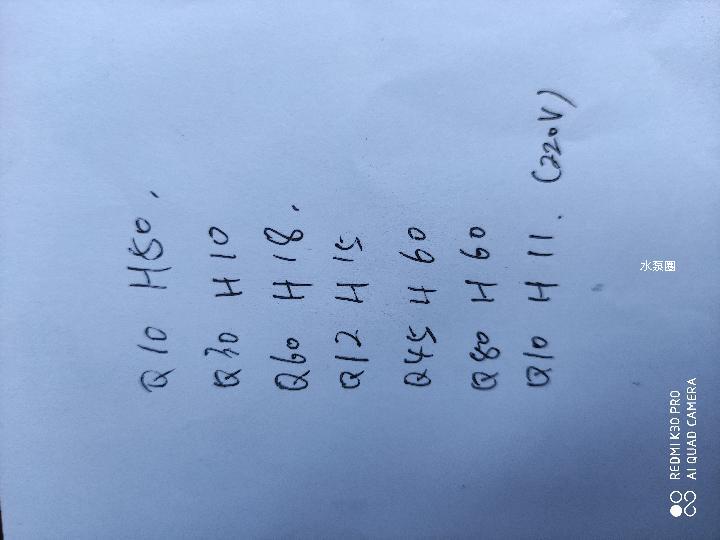 Q10 H80.
Q30 H10
Q60 H18.
Q12 H15
Q45 H60
Q80 H60
Q10 H11. (220V)
水泵圈
REDMI K30 PRO
AI QUAD CAMERA